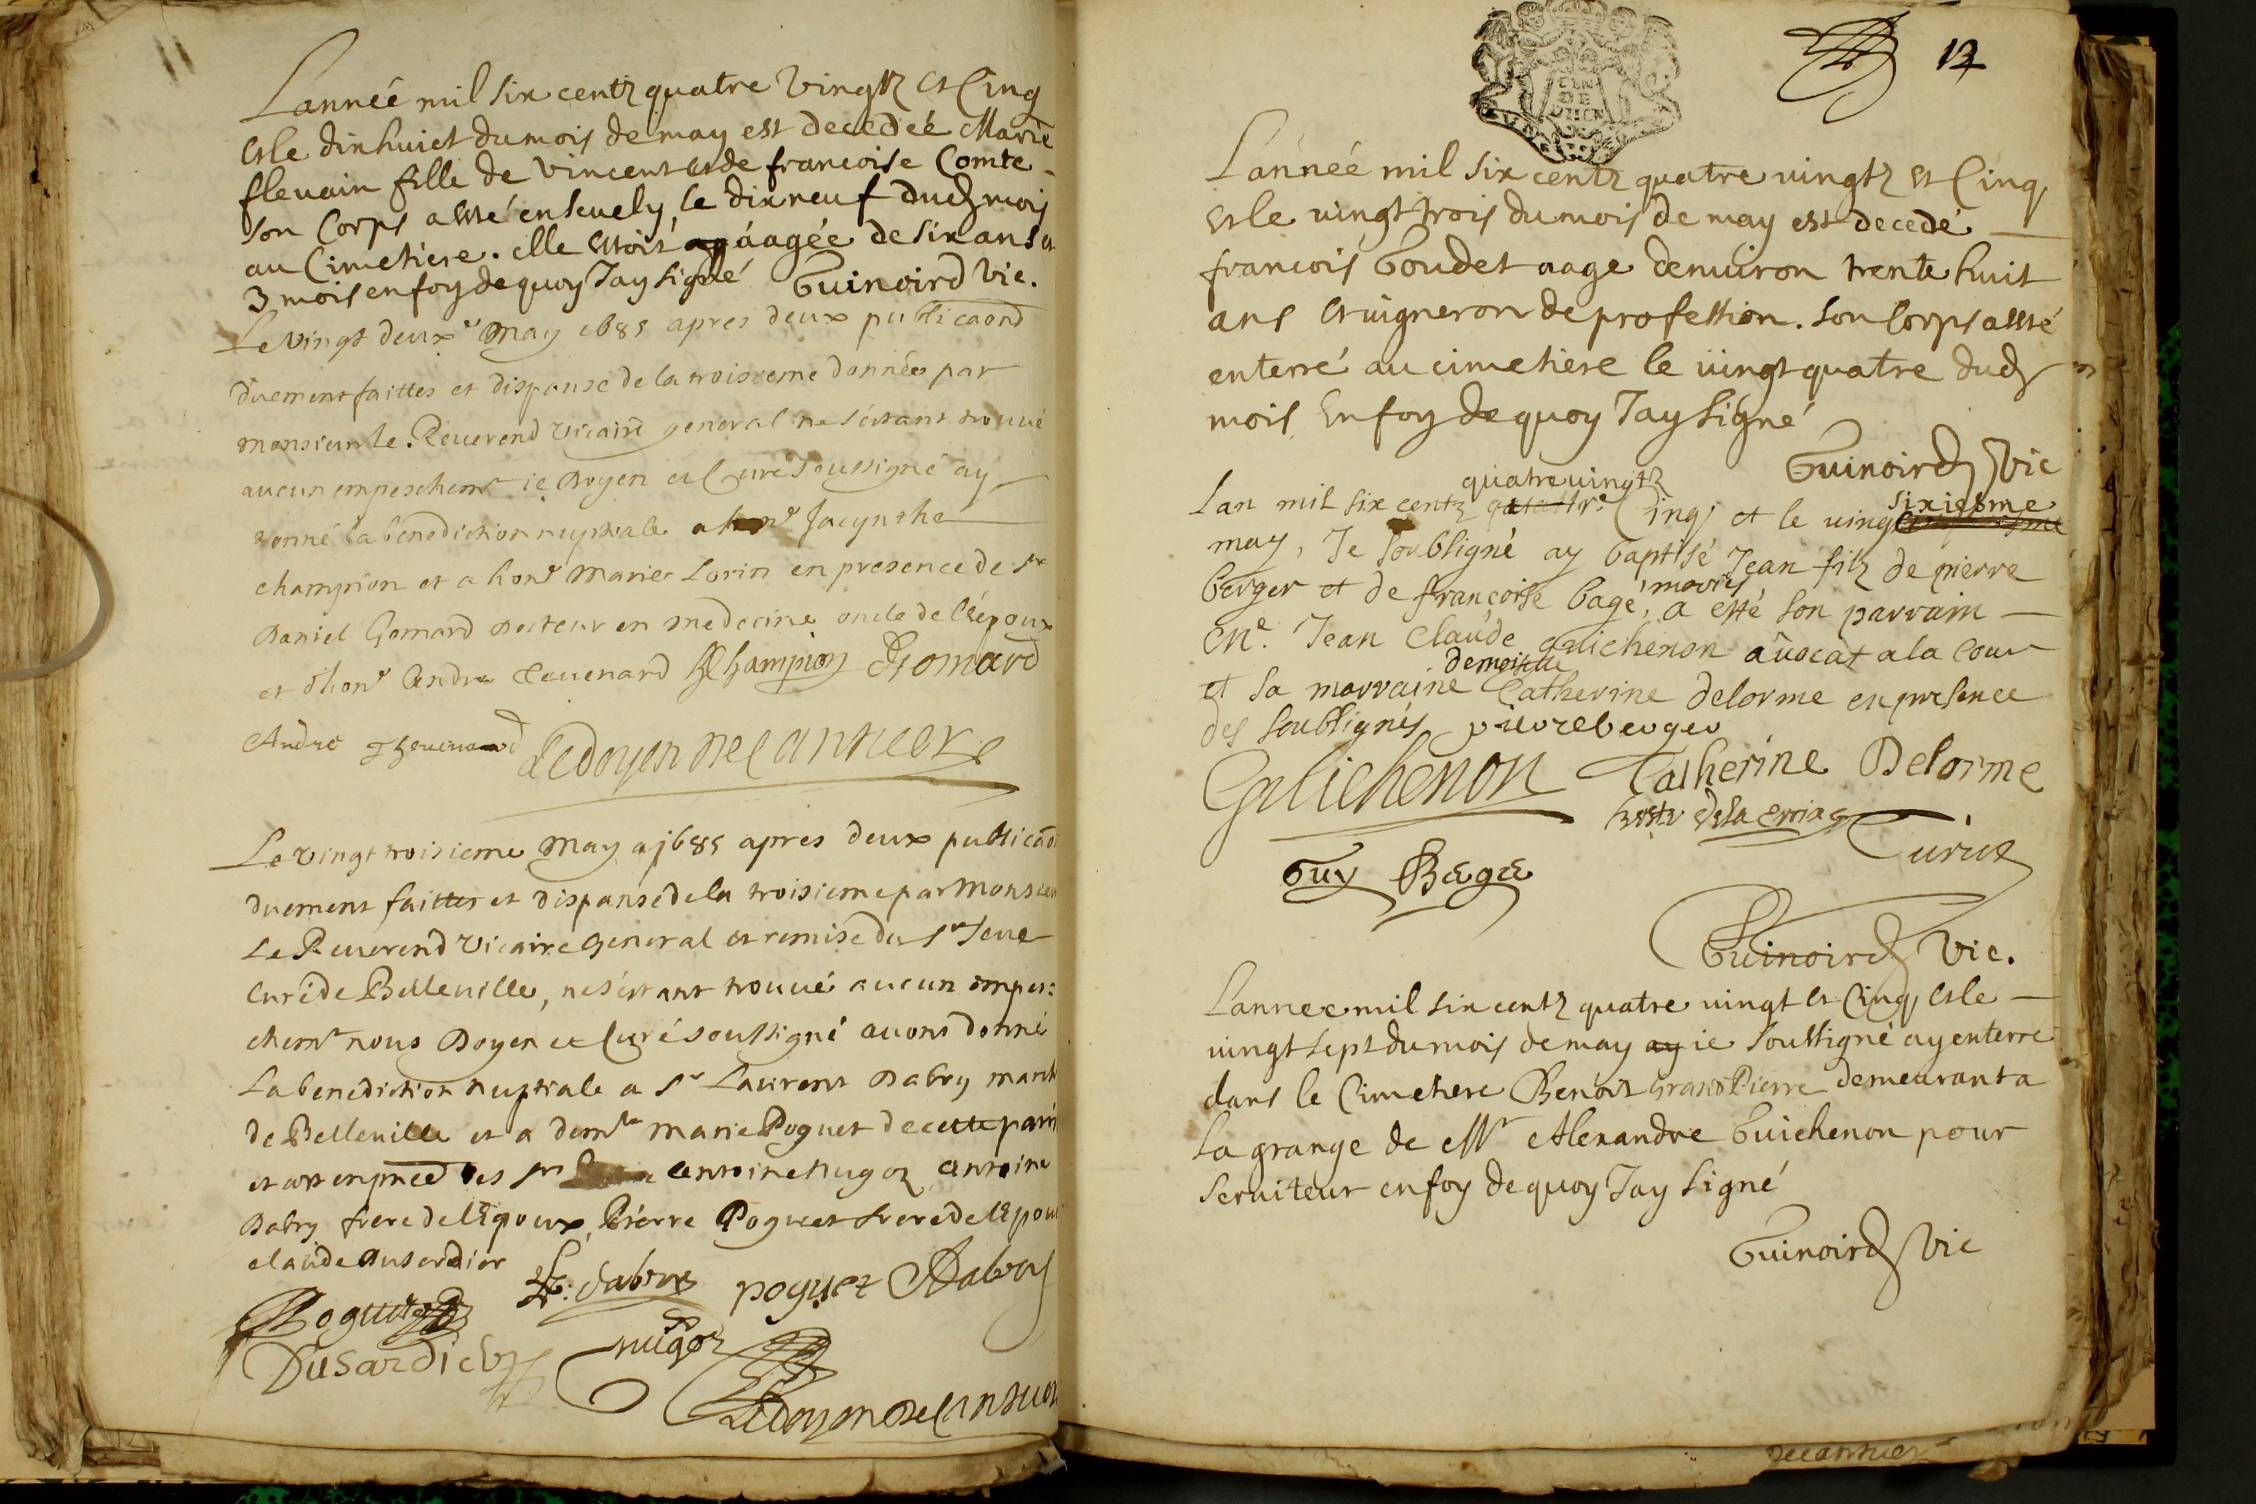 Lannéé mil six centz quatre vingtz et Cinq
et le dixhuict du mois de may est decedéé Marie
flevain fille de vincent et de francoise Comte
son Corps a esté ensevely le dixneuf dud mois
au Cimetiere. elle estoit áagée de six ans et
3 mois en foy de quoy Jay signé Guinoird vic.
Le vingt deuxe May 1685 apres deux publicaond
duement faittes et dispense de la troisieme données par
monsieur le Reuerend Vicaire general ne s'estant trouué
aucun empeschemt ie Doyen et Curé soussigné ay
donné la benediction nuptiale a honr Jacynthe
champion et a honr Marie Lorin en presence de sr
Daniel Gomard Docteur en medecine oncle de l'époux
et d'honr Andre Teuenard JChampion DGomard
André Theuenard Ledoyen Decantueor
Le vingt troisieme May 1685 apres deux publicaõ
duement faittes et dispense de la troisieme par Monsieu
Le Reuerend Vicaire General et remise du sr Seue
Curé de Belleuille, ne s'estant trouué aucun empes:
chemt nous Doyen et Curé soussigné auons donné
La benediction nuptiale a sr Laurent Dabry march
de Belleuille et a demlle Marie Poguet de cette parr
et ont en prñce des srs Antoine Nugoz Antoine
Dabry frere de l'Epoux, Pierre Poguet frere de l'Epou
claude Dusardier
Poguet L. dabry poguet ADabry
Dusardier nugoz
Ledoyen Decantueor
12
GEN
DE
Lannéé mil six centz quatre uingtz et Cinq
et le uingt trois du mois de may est decedé
francois Goudet aage denuiron trente huit
ans et uigneron de profession. son Corps a esté
enterré au cimetiere le uingt quatre dud
mois En foy de quoy Jay signé
Guinoird Vic
quatreuingtz
Lan mil six centz Cinq et le uingt sixiesme
may, Je soubsigné ay baptisé Jean filz de pierre
berger et de françoise bagé mariés, a esté son parrain
Me. Jean Claude Guichenon aûocat a la cour
et sa marraine demoiselle Catherine delorme en presence
des soubsignés pierre berger
Guichenon Catherine Delorme
Guy Bege
Guinoird Vic.
Lannee mil six centz quatre uingt et Cinq et le
uingt sept du mois de may ay ie soussigné ay enterre
dans le Cimetiere Benoit Grand Pierre demeurant a
la grange de Mr Alexandre Guichenon pour
seruiteur en foy de quoy Jay signé
Guinoird Vic